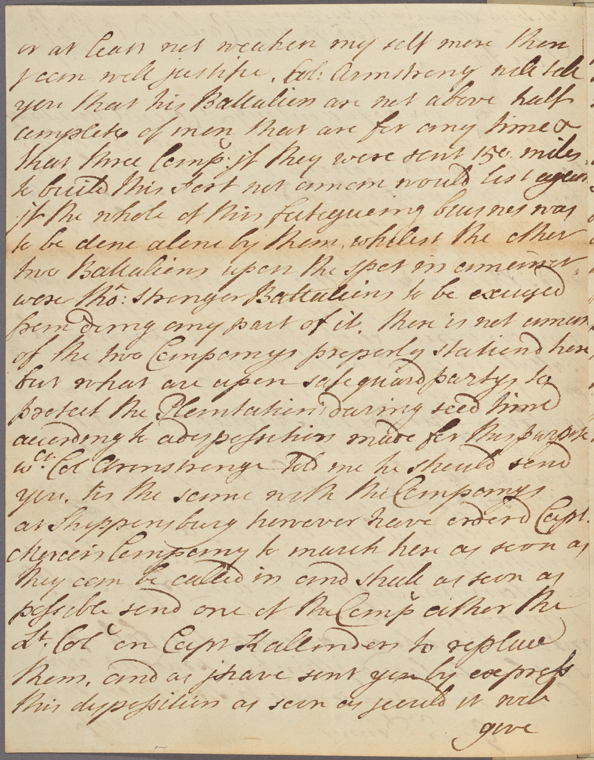 or at least not weaken my self more then
I can well justifie. Col: Armstrong will tell
you that his Battalion are not above half
compleat of men that are for any time &
that three Comp: if they were sent 150 miles
to build this Fort not a man would list again
if the whole of this fatigueing busines was
to be done alone by them, whilest the other
two Battalions upon the spot in a manner
were tho: stronger Battalions to be excused
from doing any part of it. There is not a man
of the two Companys properly stationd here
but what are upon safeguard partys to
protect the Plantations during seed time
according to a disposition made for this purpose
wch Col Armstrong told me he should send
you. tis the same with the Companys
at Shippensburg however have orderd Capt.
Company to march here as soon as
they can be called in and shall as soon as
possible send one of the Comp either the
Lt. Col or Capt Hallenders to replace
them, and as I have sent you by express
this disposition as soon as I could it will
give